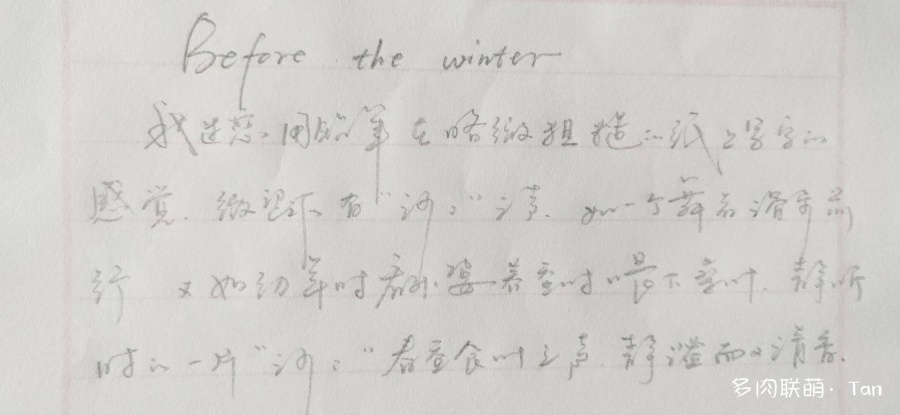 Before the winter
我迷恋用铅笔在略微粗糙的纸上写字的
感觉.微观下有“沙沙”之声.如一个舞者滑步前
行 又如幼年时看外婆养蚕时喂下桑叶.静听
时的一片“沙沙”春蚕食叶之声.静谧而又清香.
多肉联萌·Tan